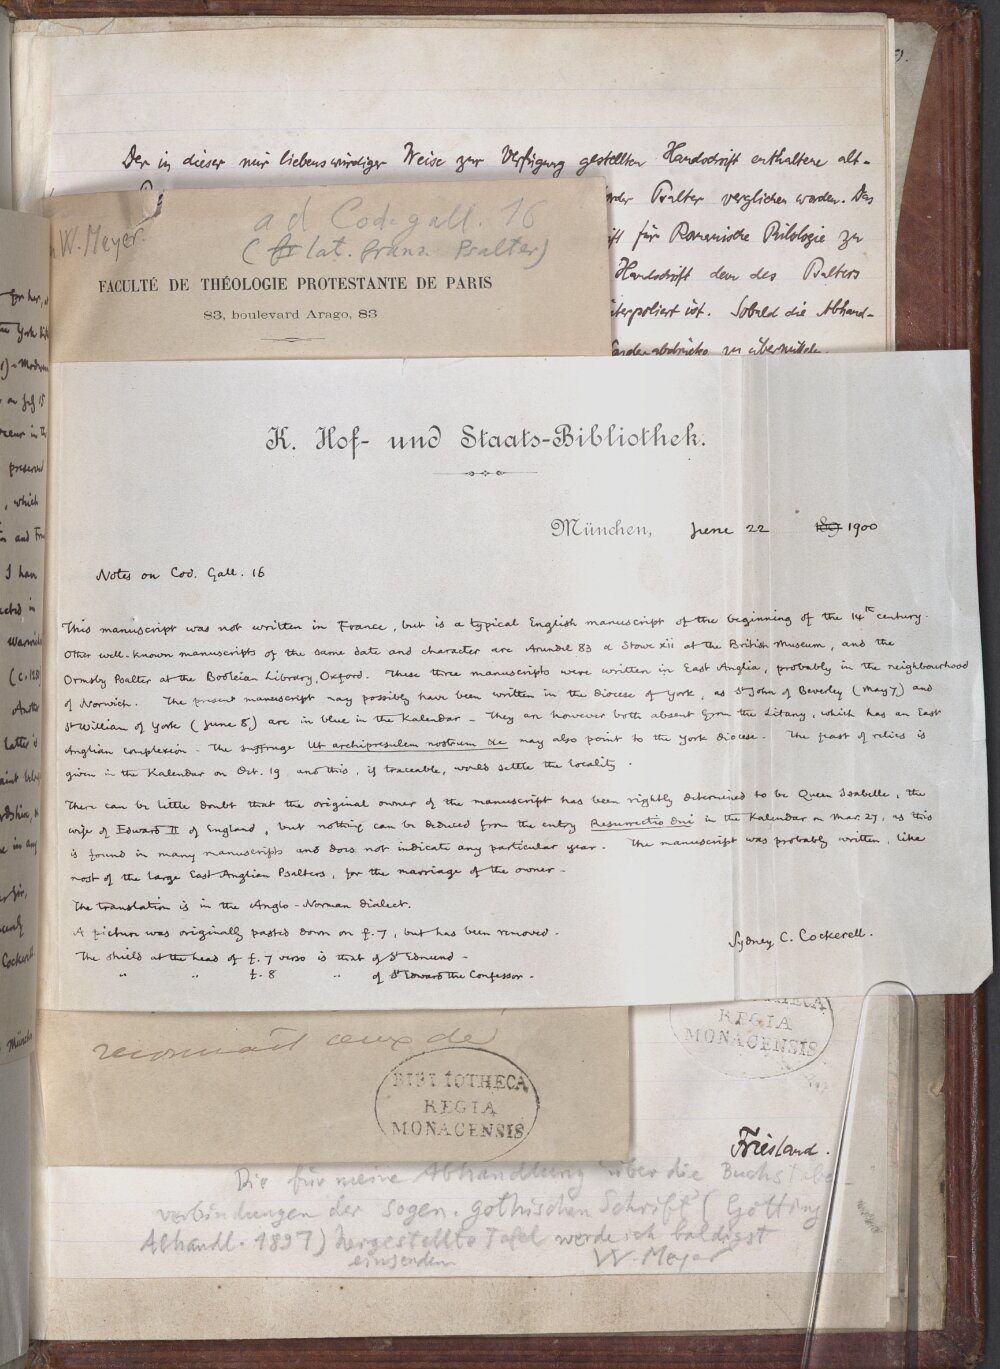 Der in dieser mir liebenswürdiger Weise zur Verfügung gestellten Handschrift enthaltene alt-
Psalter verglichen worden. Das
für Romanische Philologie zu
Handschrift dem des Psalters
interpoliert ist. Sobald die Abhand-
zu übermitteln.
W. Meyer.
ad Cod. gall. 16
(lat. franz. Psalter)
FACULTÉ DE THÉOLOGIE PROTESTANTE DE PARIS
83, boulevard Arago, 83
K. Hof- und Staats-Bibliothek.
München, June 22 189 1900
Notes on Cod. Gall. 16
This manuscript was not written in France, but is a typical English manuscript of the beginning of the 14th century.
Other well-known manuscripts of the same date and character are Arundel 83 & Stowe xii at the British Museum, and the
Ormsby Psalter at the Bodleian Library, Oxford. These three manuscripts were written in East Anglia, probably in the neighbourhood
of Norwich. The present manuscript may possibly have been written in the diocese of York, as St John of Beverley (May 7) and
St William of York (June 8) are in blue in the Kalendar - They are however both absent from the Litany, which has an East
Anglian complexion - The suffrage Ut archipresulem nostrum &c may also point to the York diocese. The feast of relics is
given in the Kalendar on Oct. 19 and this, if traceable, would settle the locality.
There can be little doubt that the original owner of the manuscript has been rightly determined to be Queen Isabelle, the
wife of Edward II of England, but nothing can be deduced from the entry Resurrectio dni in the Kalendar on Mar. 27, as this
is found in many manuscripts and does not indicate any particular year. The manuscript was probably written, like
most of the large East Anglian Psalters, for the marriage of the owner -
The translation is in the Anglo-Norman dialect.
A picture was originally pasted down on f. 7, but has been removed.
Sydney C. Cockerell.
The shield at the head of f. 7 verso is that of St Edmund -
" " f. 8 " of St Edward the Confessor -
REGIA
MONACENSIS
reconnaît ceux de
BIBLIOTHECA
REGIA
MONACENSIS
Friesland.
Die für meine Abhandlung über die Buchstaben
verbindungen der sogen. gothischen Schrift (Götting
Abhandl. 1897) hergestellte Tafel werde ich baldigst
einsenden W. Meyer